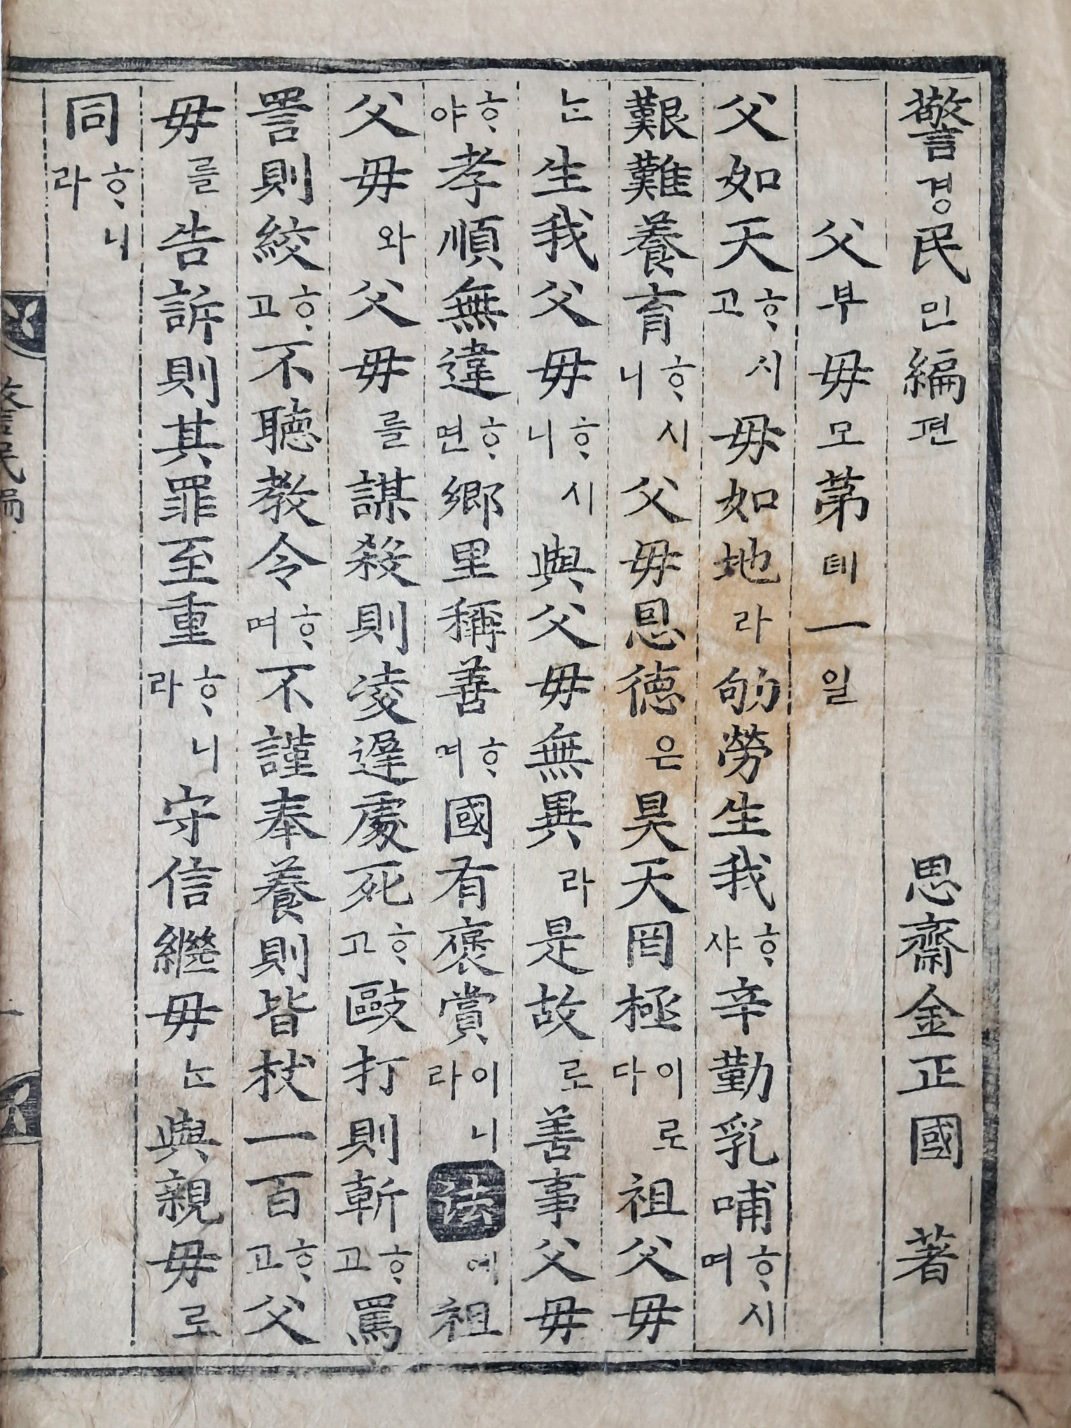 警경民민編편 思齋金正國 著
父부母모第뎨一일
父如天ᄒᆞ시고母如地라劬勞生我ᄒᆞ샤辛勤乳哺ᄒᆞ시며
艱難養育ᄒᆞ시니父母恩德은昊天罔極이로다祖父母
ᄂᆞᆫ生我父母ᄒᆞ시니與父母無異라是故로善事父母
ᄒᆞ야孝順無違ᄒᆞ면鄉里稱善ᄒᆞ며國有褒賞이니라法에祖
父母와父母를謀殺則凌遲處死ᄒᆞ고毆打則斬ᄒᆞ고罵
詈則絞ᄒᆞ고不聽教令ᄒᆞ며不謹奉養則皆杖一百ᄒᆞ고父
母를告訴則其罪至重ᄒᆞ니라守信繼母ᄂᆞᆫ與親母로
同ᄒᆞ니라
警民編
一